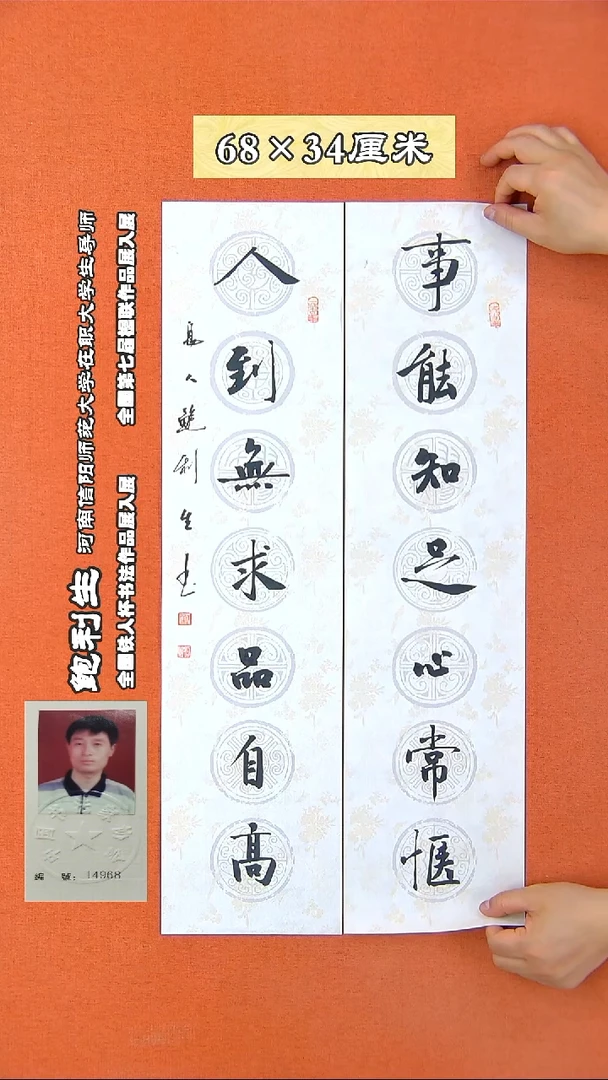 68×34厘米
事能知足心常惬
人到無求品自高
鲍利生书
鲍利生 河南信阳师范大学在职大学生导师
全国第七届楹联作品展入展
全国铁人杯书法作品展入展
编 號：14968